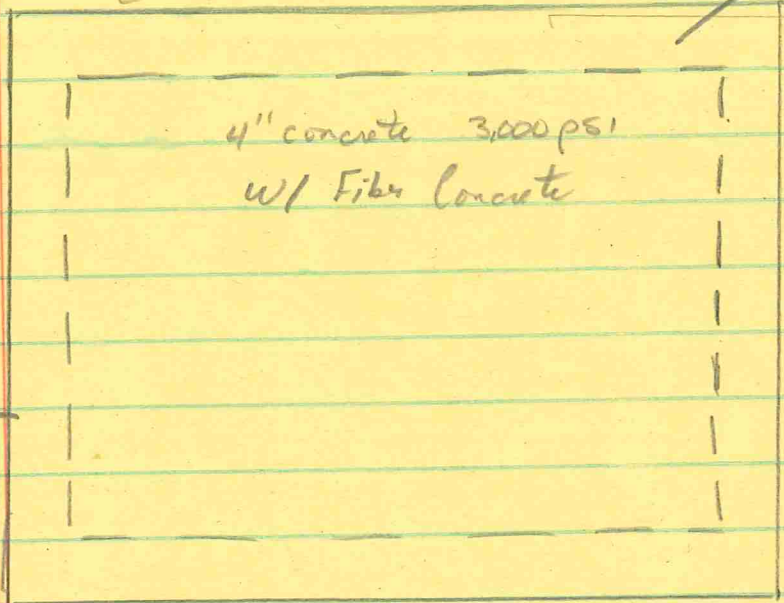 4" concrete 3,000 psi
w/ Fiber Concrete